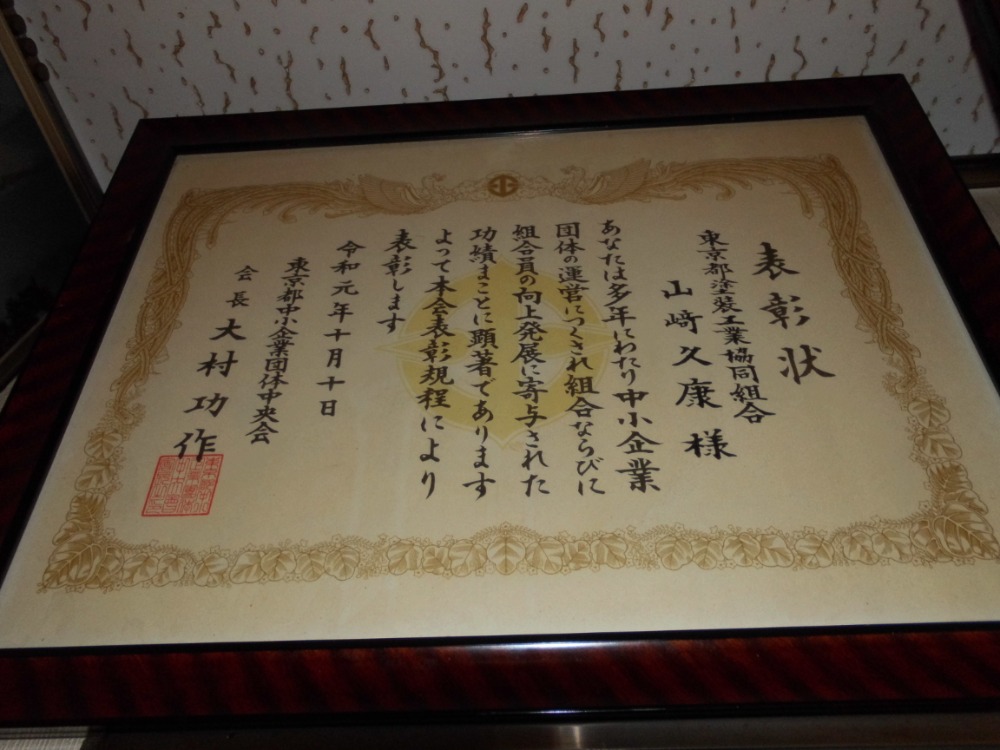 表彰状
東京都塗装工業協同組合
山﨑久康様
あなたは多年にわたり中小企業
団体の運営につくされ組合ならびに
組合員の向上発展に寄与された
功績まことに顕著であります
よって本会表彰規程により
表彰します
令和元年十月十日
東京都中小企業団体中央会
会長 大村功作